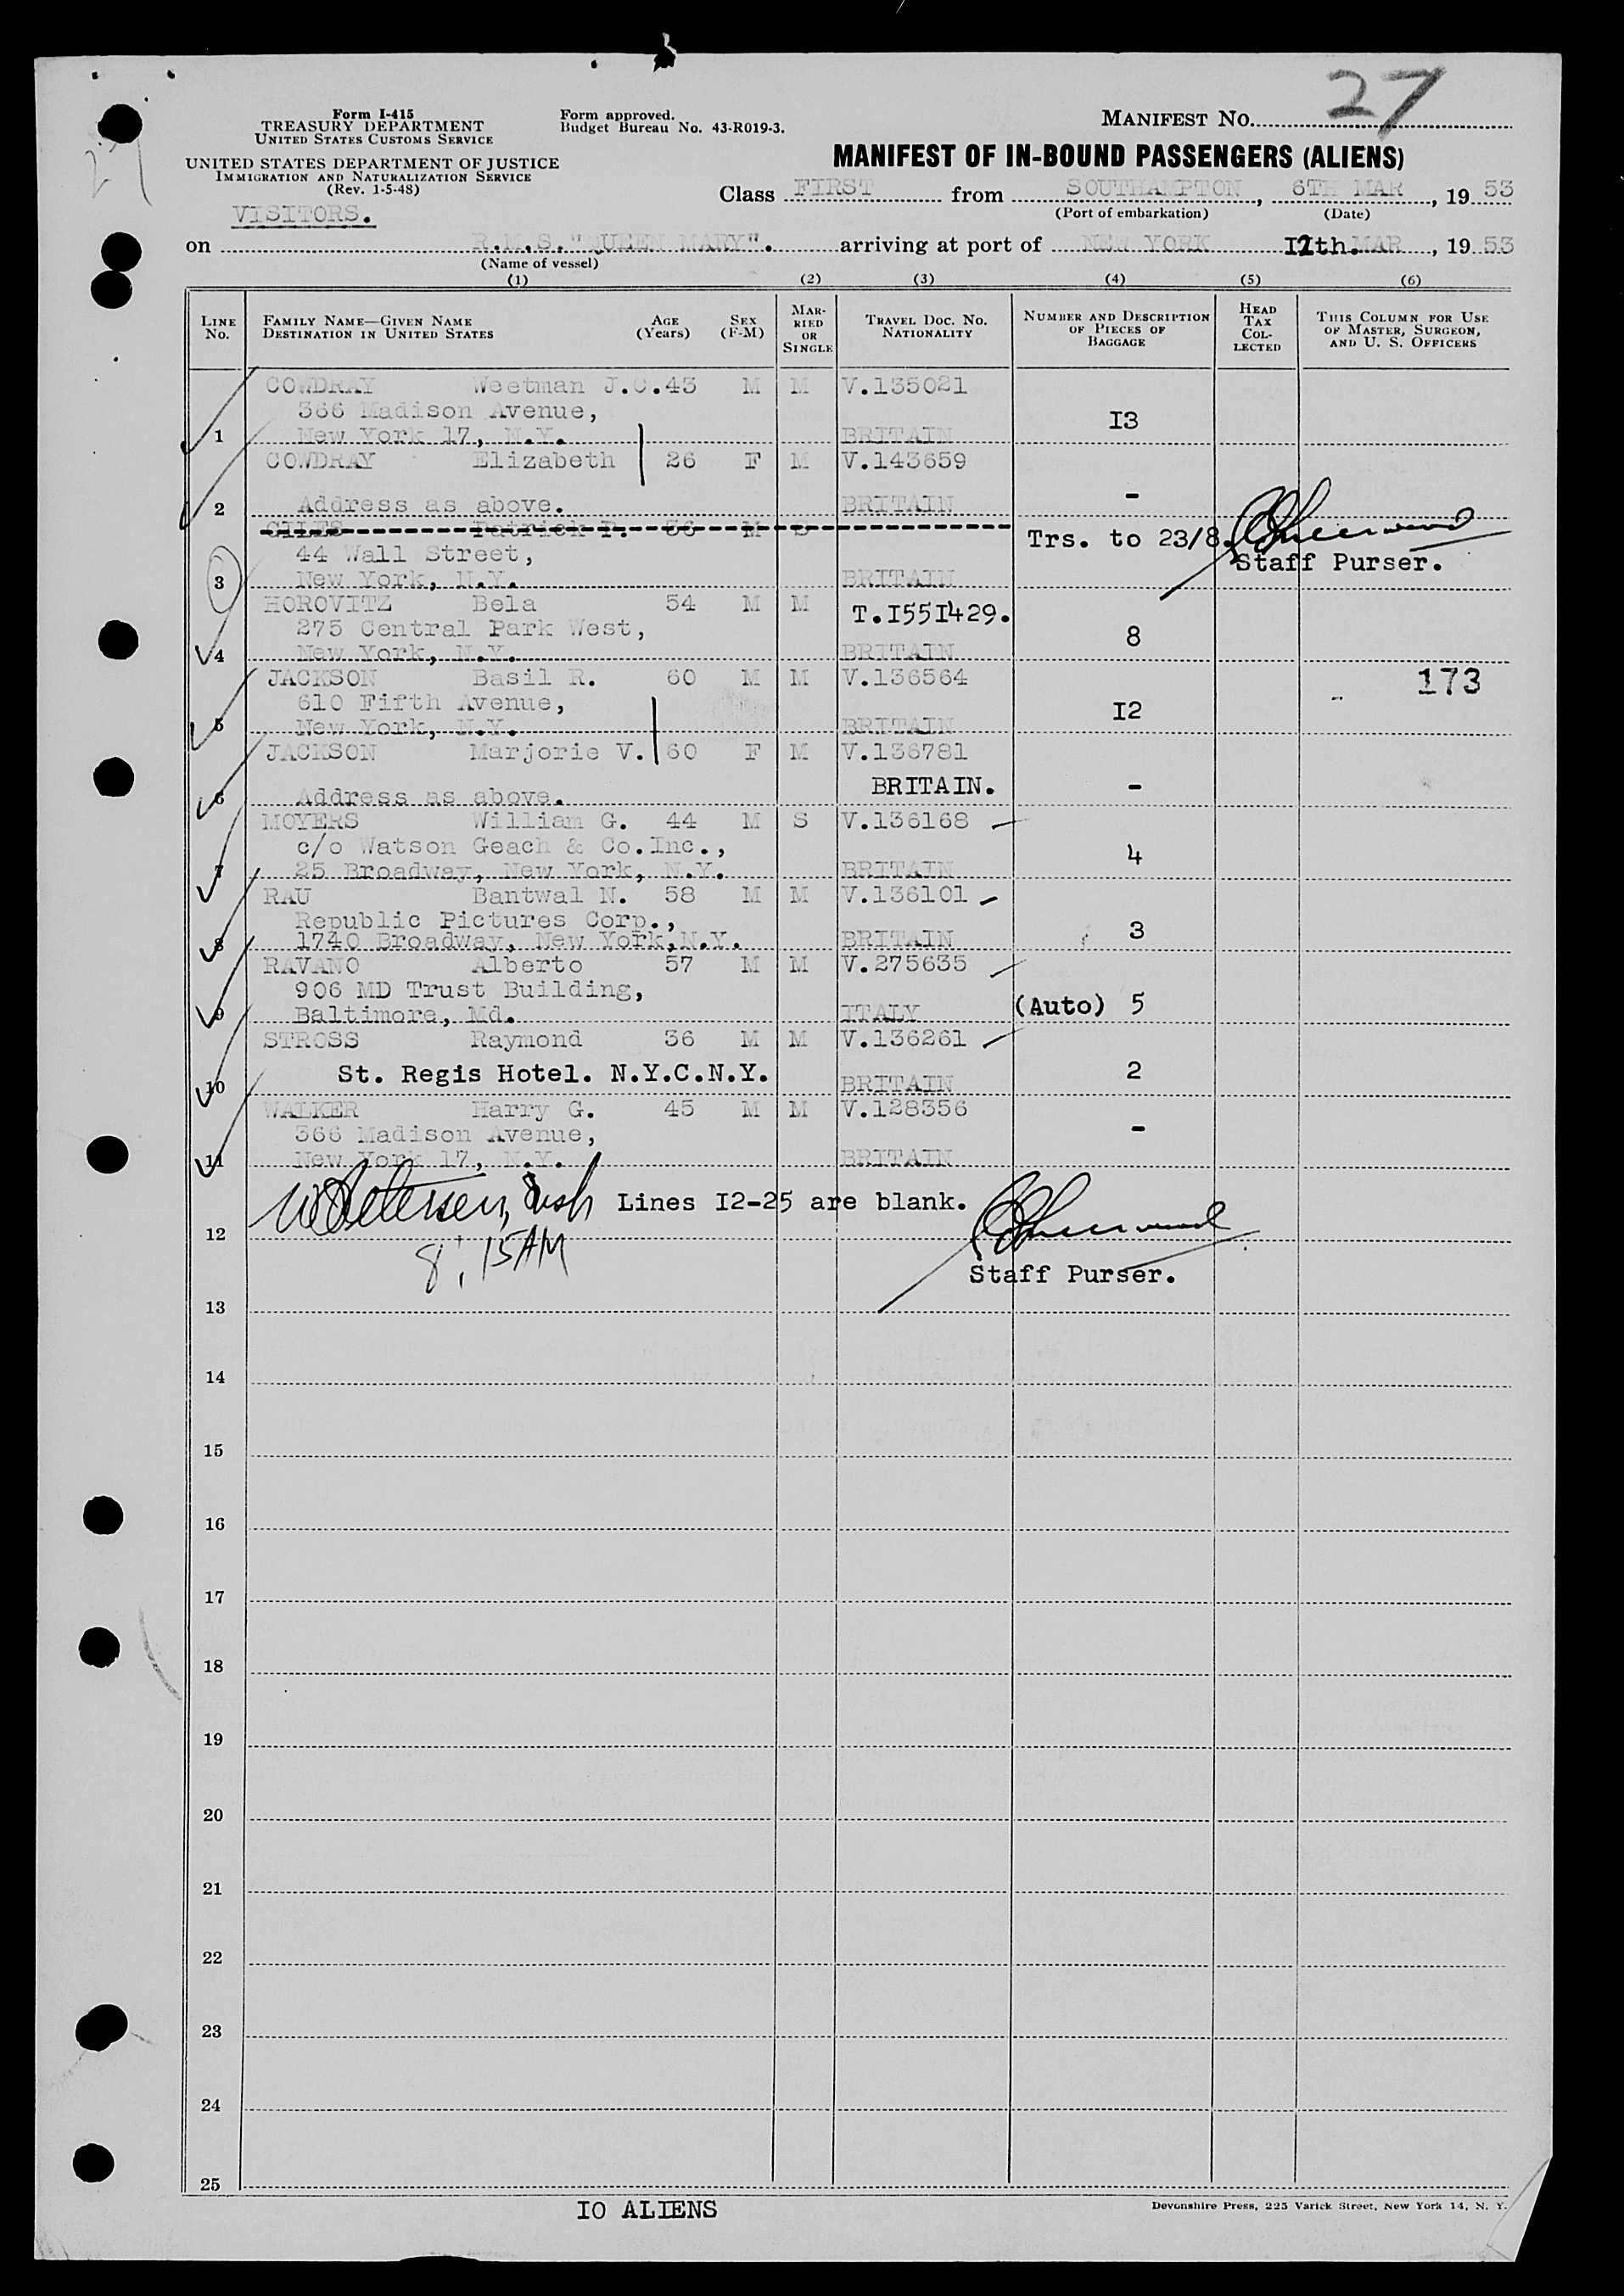 27
Form I-415
TREASURY DEPARTMENT
UNITED STATES CUSTOMS SERVICE
Form approved.
Budget Bureau No. 43-R019-3.
MANIFEST NO.
UNITED STATES DEPARTMENT OF JUSTICE
IMMIGRATION AND NATURALIZATION SERVICE
(Rev. 1-5-48)
MANIFEST OF IN-BOUND PASSENGERS (ALIENS)
VISITORS.
Class FIRST from SOUTHAMPTON, 6TH MAR, 19 53
(Port of embarkation) (Date)
on R.M.S."QUEEN MARY". arriving at port of NEW YORK 12th. MAR, 19 53
(Name of vessel)
(1) (2) (3) (4) (5) (6)
LINE No. FAMILY NAME—GIVEN NAME DESTINATION IN UNITED STATES AGE (Years) SEX (F-M) MARRIED OR SINGLE TRAVEL DOC. NO. NATIONALITY NUMBER AND DESCRIPTION OF PIECES OF BAGGAGE HEAD TAX COLLECTED THIS COLUMN FOR USE OF MASTER, SURGEON, AND U. S. OFFICERS
COWDRAY Weetman J.C. 43 M M V.135021
366 Madison Avenue, I3
1 New York 17, N.Y. BRITAIN
COWDRAY Elizabeth 26 F M V.143659
2 Address as above. BRITAIN -
GILES Patrick P. 36 M S
44 Wall Street, Trs. to 23/8.
Staff Purser.
3 New York, N.Y. BRITAIN
HOROVITZ Bela 54 M M T.I55I429.
275 Central Park West, 8
4 New York, N.Y. BRITAIN
JACKSON Basil R. 60 M M V.136564 173
610 Fifth Avenue, I2
5 New York, N.Y. BRITAIN
JACKSON Marjorie V. 60 F M V.136781
BRITAIN. -
6 Address as above.
MOYERS William G. 44 M S V.136168
c/o Watson Geach & Co.Inc., 4
7 25 Broadway, New York, N.Y. BRITAIN
RAU Bantwal N. 58 M M V.136101
Republic Pictures Corp., 3
8 1740 Broadway, New York,N.Y. BRITAIN
RAVANO Alberto 57 M M V.275635
906 MD Trust Building, (Auto) 5
9 Baltimore, Md. ITALY
STROSS Raymond 36 M M V.136261
St. Regis Hotel. N.Y.C.N.Y. 2
10 BRITAIN
WALKER Harry G. 45 M M V.128356
366 Madison Avenue, -
11 New York 17, N.Y. BRITAIN
Lines I2-25 are blank.
12
8:15AM
Staff Purser.
13
14
15
16
17
18
19
20
21
22
23
24
25
IO ALIENS
Devonshire Press, 225 Varick Street, New York 14, N. Y.